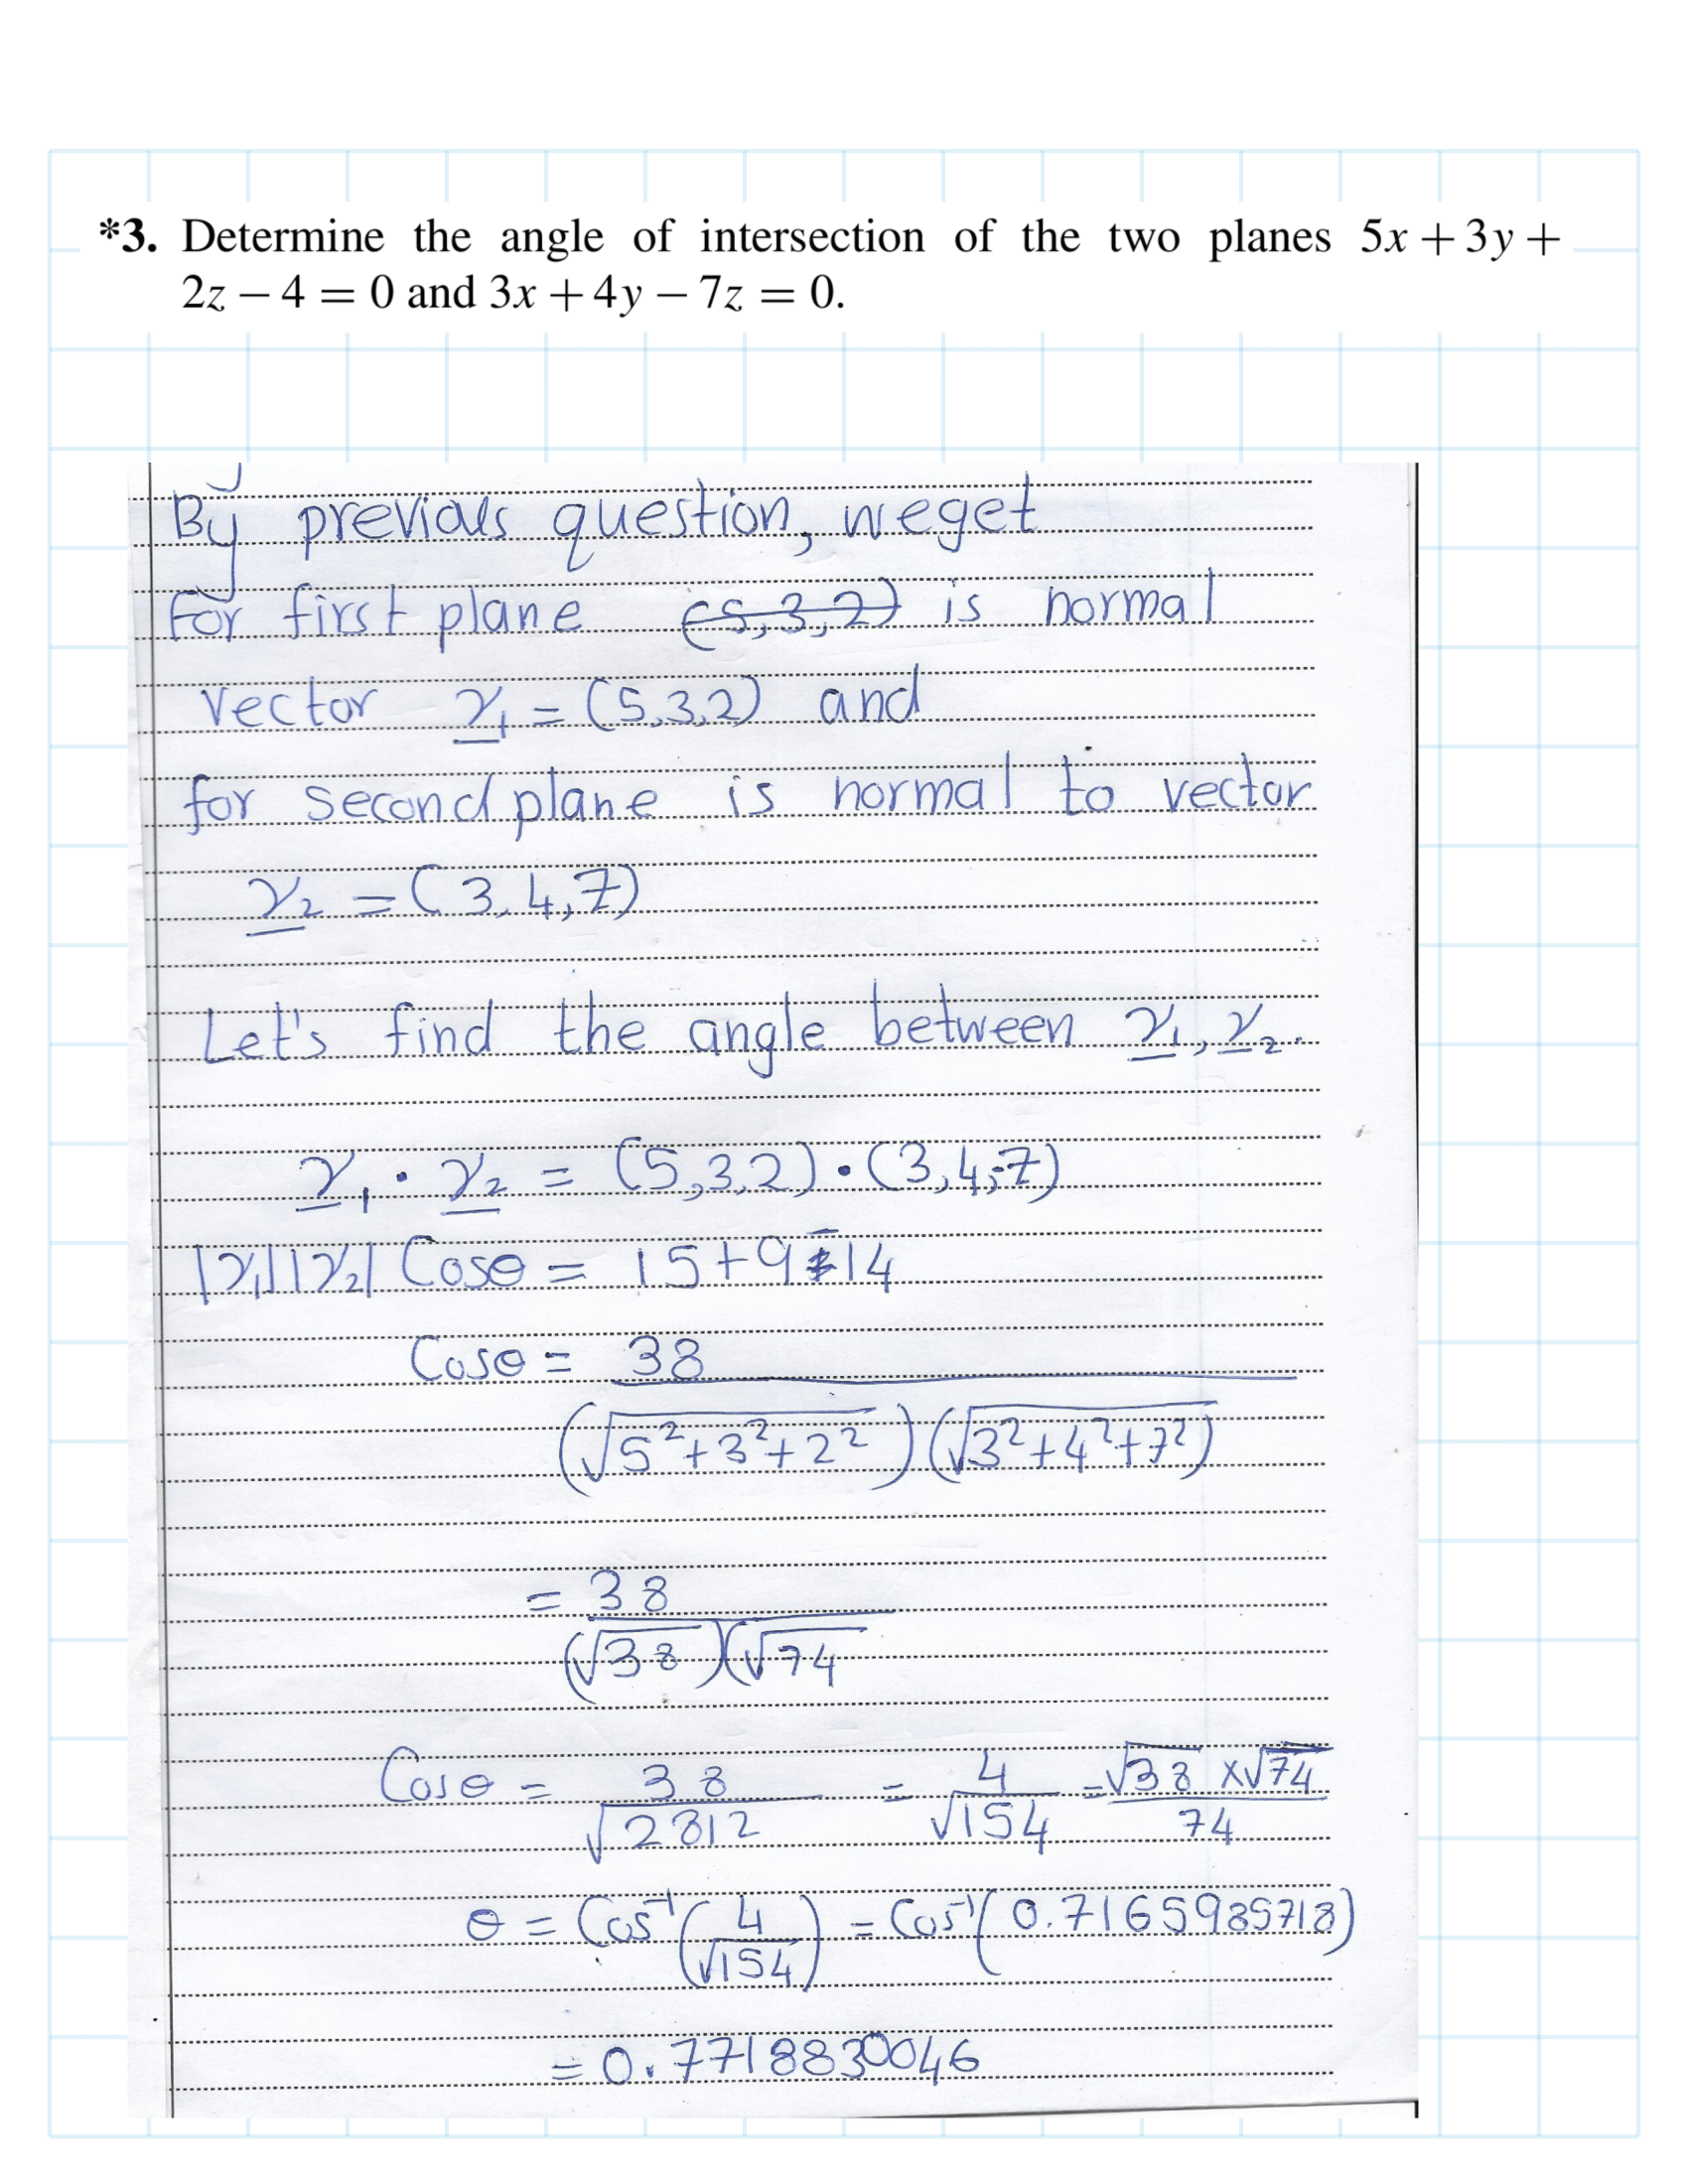 *3. Determine the angle of intersection of the two planes 5x + 3y +
2z − 4 = 0 and 3x + 4y − 7z = 0.
By previous question, we get
For first plane (5,3,2) is normal
vector γ₁ = (5,3,2) and
for second plane is normal to vector
γ₂ = (3,4,7)
Let's find the angle between γ₁, γ₂.
γ₁ · γ₂ = (5,3,2) · (3,4,-7)
|γ₁||γ₂| Cosθ = 15+9-14
Cosθ = 38
(√5²+3²+2²)(√3²+4²+7²)
= 38
(√38)(√74
Cosθ = 38/√2812 = 4/√154 = √38 x√74/74
θ = Cos⁻¹(4/√154) = Cos⁻¹(0.7165985718)
= 0.7718830046